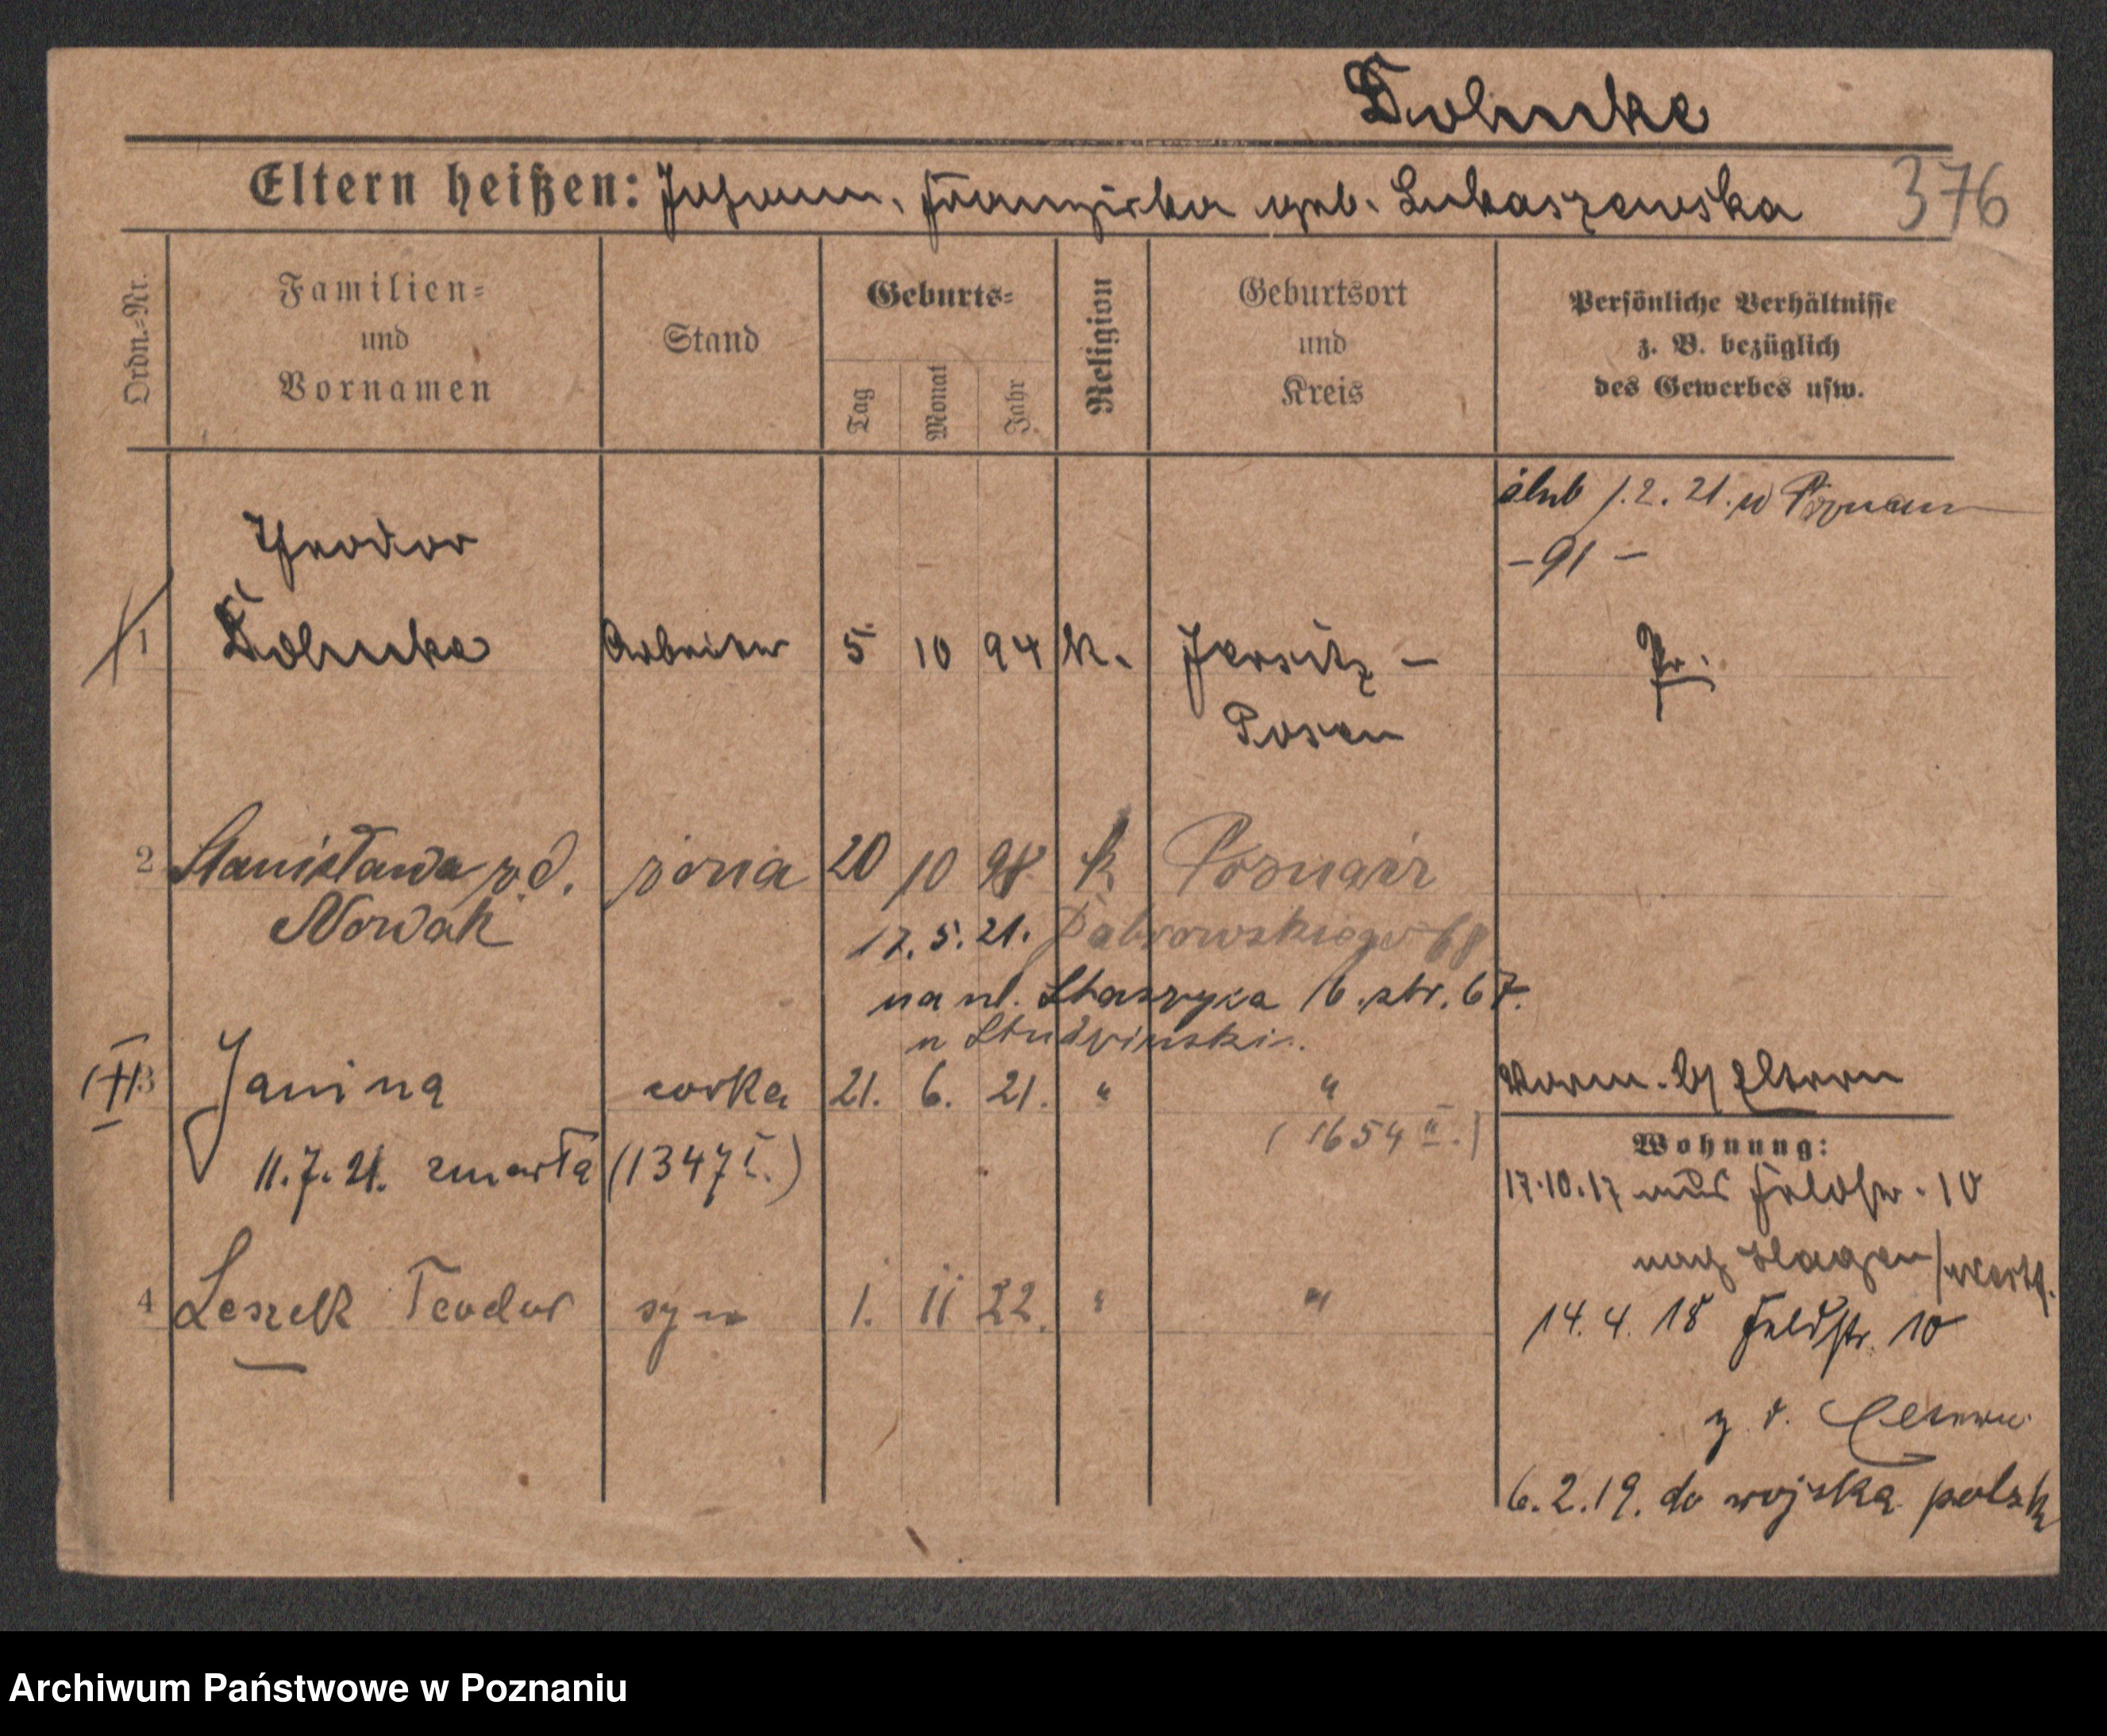 Eltern heißen: Johann, Franziska geb. Lukaszewska 376
Ordn.-Nr.
Familien-
und
Vornamen
Stand
Geburts-
Tag
Monat
Jahr
Religion
Geburtsort
und
Kreis
Persönliche Verhältnisse
z. B. bezüglich
des Gewerbes usw.
ślub 1.2.21. w Poznaniu
- 91 -
Theodor
1 Arbeiter 5 10 94 k. Jersitz -
Posen
Pr.
2 Stanisława z d. żona 20 10 98 k Poznań
Nowak
17.5.21. Dąbrowskiego 68
na ul. Staszyca 16. str. 67.
3 Janina corka 21. 6. 21. " "
(1654 II.)
11.7.21. zmarła (1347 I.)
4 Leszek Teodor syn 1. 11 22. " "
Eltern
Wohnung:
17.10.17 aus Feldstr. 10
nach Hagen
14.4.18 Feldstr. 10
z. d. Eltern
6.2.19. do wojska polsk
Archiwum Państwowe w Poznaniu